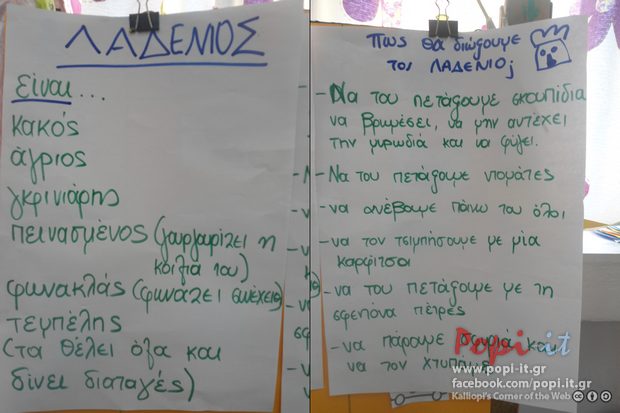 ΛΑΔΕΝΙΟΣ
Είναι...
κακός
άγριος
γκρινιάρης
πεινασμένος (γουργουρίζει η
κοιλιά του)
φωνακλάς (φωνάζει συνέχεια)
τεμπέλης
(τα θέλει όλα και
δίνει διαταγές)
Πως θα διώξουμε
τον ΛΑΔΕΝΙΟ;
- Να του πετάξουμε σκουπίδια
να βρωμίσει, να μην αντέχει
την μυρωδιά και να φύγει.
- Να του πετάξουμε ντομάτες
- να ανέβουμε πάνω του όλοι
- να τον τσιμπήσουμε με μία
καρφίτσα
- να του πετάξουμε με τη
σφεντόνα πέτρες
- να πάρουμε σπαθιά και
να τον χτυπήσουμε
Popi it
www.popi-it.gr
facebook.com/popi.it.gr
Kalliopi's Corner of the Web